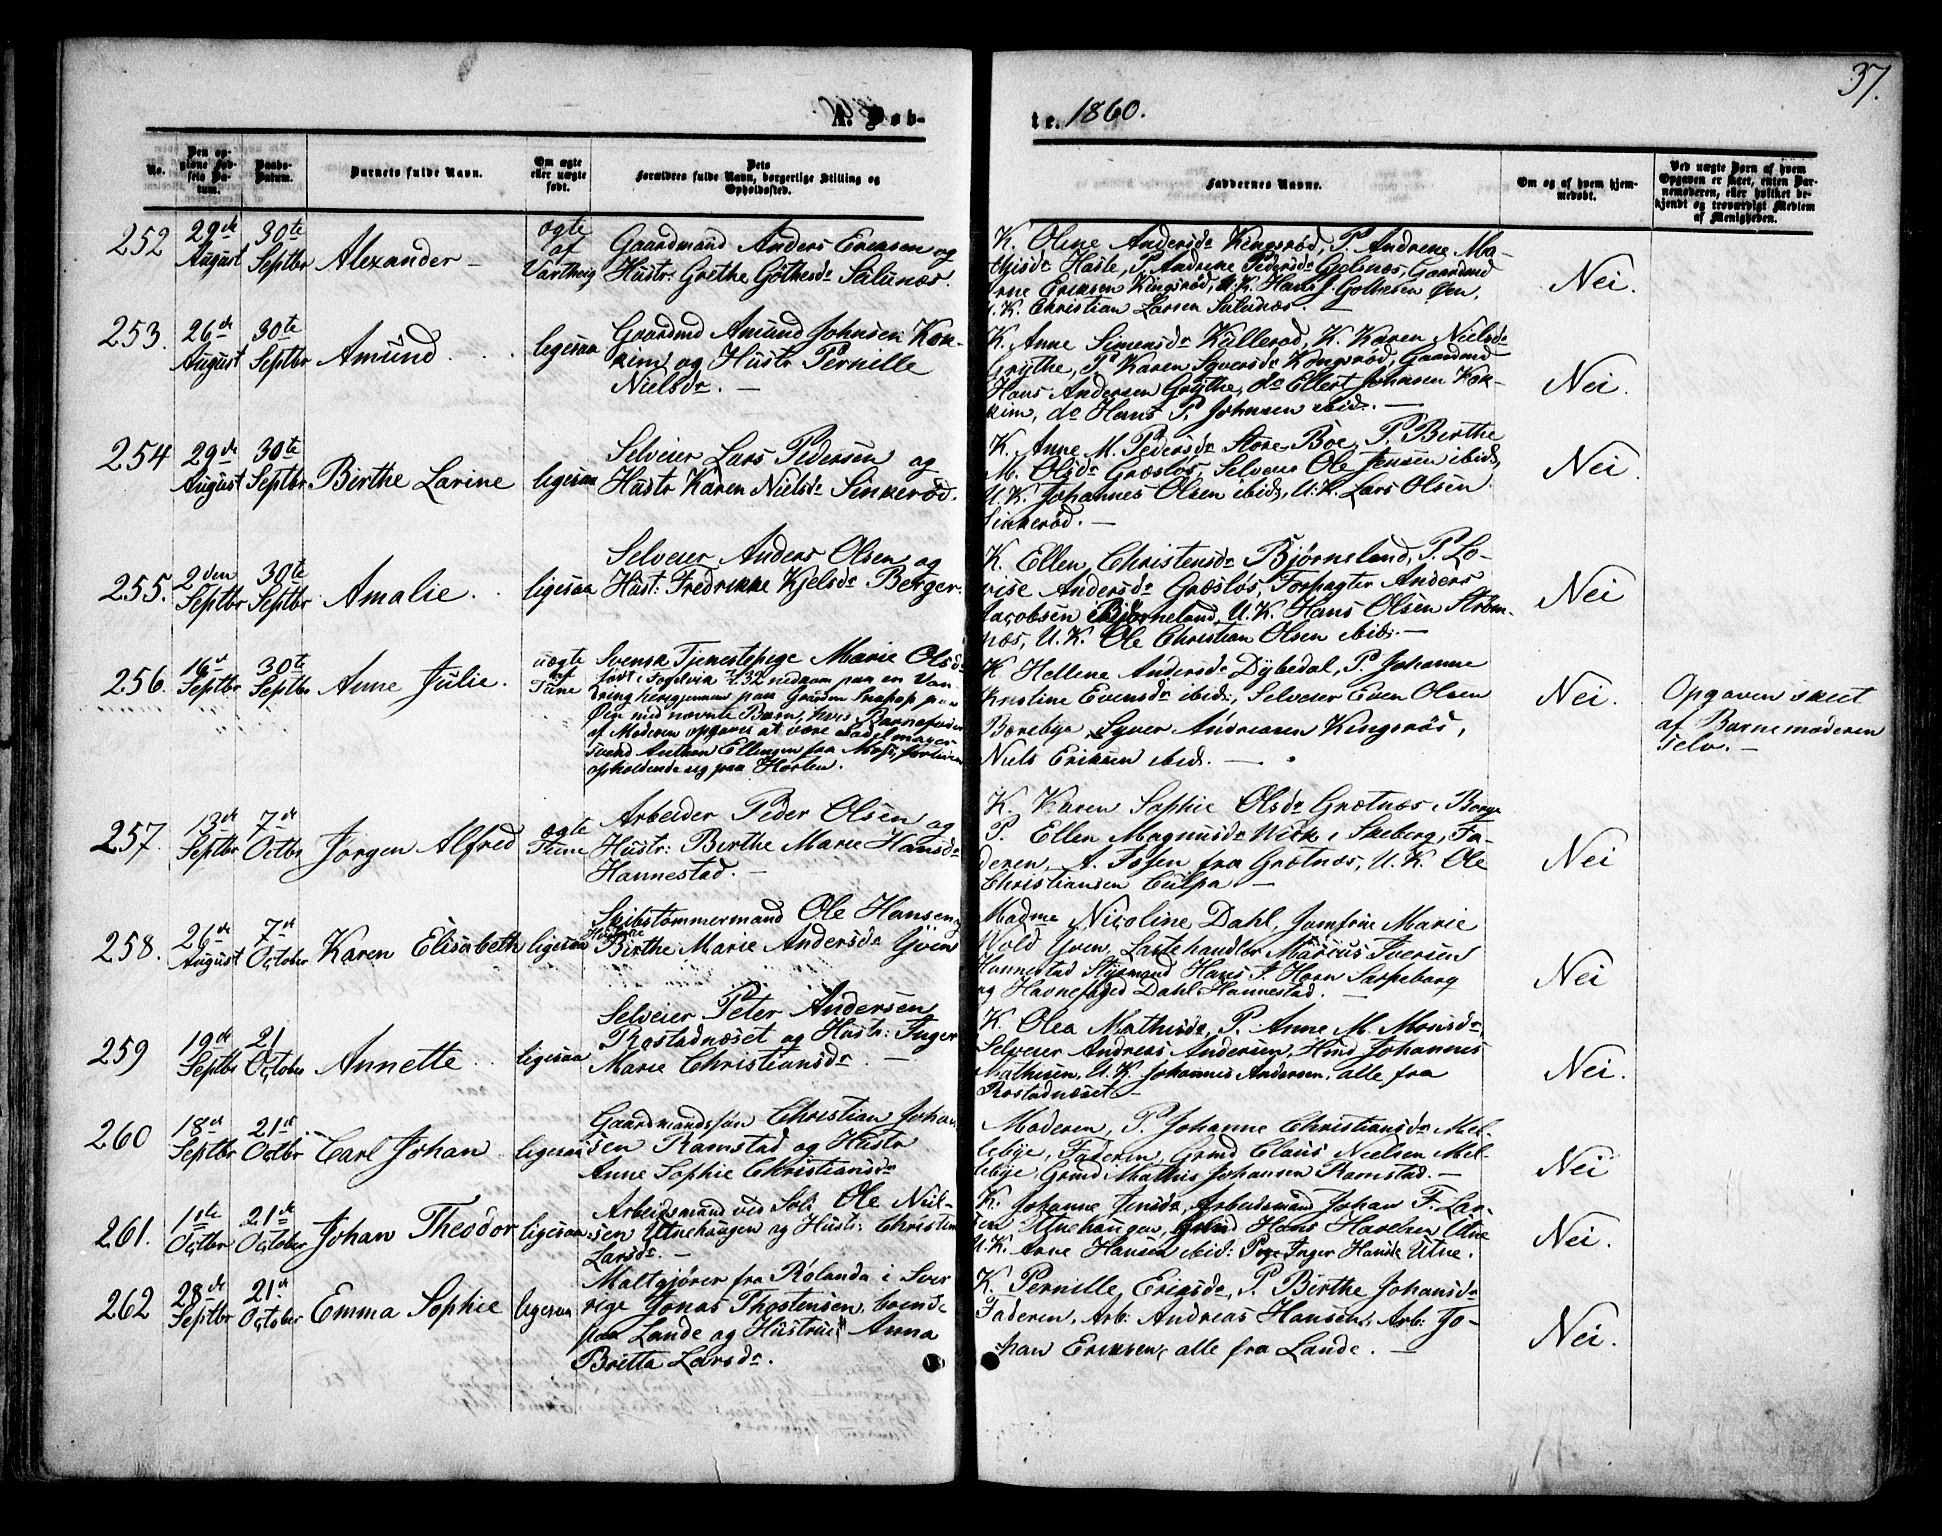 37.
A. Døb-
te. 1860.
No.
Den op-
givne Fød-
sels Da-
tum.
Daabs-
Datum.
Barnets fulde Navn.
Om ægte
eller uægte
født.
Dets
Forældres fulde Navn, borgerlige Stilling og
Opholdssted.
Faddernes Navne.
Om og af hvem hjem-
medøbt.
Ved uægte Børn af hvem
Opgaven er skeet, enten Bar-
nemoderen, eller hvilket be-
kjendt og troværdigt Medlem
af Menigheden.
252
29de
August
30te
Septbr
Alexander
ægte
af
Varteig
Gaardmand Anders Eriksen og
Hustr: Grethe Gothesdr Salunæs.
K. Oline Andersdr Kingsrød, P. Andrene Ma-
thisdr Hasle, P. Andrine Pedersdr Gjelsnæs, Gaardmd
Arne Eriksen Kingsrød, U.K. Hans J. Gothesen Øen,
U.K. Christian Larsen Salunæs.
Nei.
253.
26de
August
30te
Septbr
Amund
ligesaa
Gaardmd Amund Johnsen Kok-
kim og Hustr Pernille
Nielsdr. —
K. Anne Simensdr Kullerød, K. Karen Nielsdr
Grythe, P. Karen Syversdr Kongsrød, Gaardmd
Hans Andersen Grythe, do Ellert Johnsen Kok-
kim, do Hans P. Johnsen ibid. —
Nei.
254
29de
August
30te
Septbr.
Birthe Larine
ligesaa
Selveier Lars Pedersen og
Hustr Karen Nielsdr Sinkerød.
K. Anne M. Pedersdr Store-Bøe, P. Birthe
M. Olsdr Græsløs, Selveier Ole Jensen ibid,
U.K. Johannes Olsen ibid, U.K. Lars Olsen
Sinkerød. —
Nei.
255.
2den
Septbr
30te
Septbr
Amalie.
ligesaa
Selveier Anders Olsen og
Hust: Fredrikke Kjelsdr Berger.
K. Ellen Christensdr Bjørneland, P. Lo-
vise Andersdr Græsløs, Forpagter Anders
Jacobsen Bjørneland, U.K. Hans Olsen Strøm-
næs, U.K. Ole Christian Olsen ibid. —
Nei
256.
16de
Septbr
30te
Septbr
Anne Julie.
uægte
af
Tune
Svensk Tjenestepige Marie Olsdr
født i Fogelvik 1832 nedkom paa en Van-
dring hen paa Gaarden paa
Øie med Barn, hvis Barnefader
af Moderen opgaves at være Sadelmager-
svend Anthon Ellingsen fra Moss,
opholdende sig paa Horten.
K Hellene Andersdr Dybedal, P. Johanne
Kristine Evensdr ibid:, Selveier Even Olsen
Borebye, Syver Andreasen Kingsrød,
Niels Eriksen ibid. —
Nei.
Opgaven skeet
af Barnemoderen
selv. —
257.
13de
Septbr
7de
Octbr
Jørgen Alfred
ægte
Tune
Arbeider Peder Olsen og
Hustr: Birthe Marie Hansdr
Hannestad. —
K. Karen Sophie Olsdr Grætnæs i Borge
P. Ellen Magnusdr i Skeberg, Fa-
deren, A. fra Grætnæs, U.K. Ole
Christiansen Culpa —
Nei
258.
21de
August
7de
October
Karen Elisabeth
ligesaa
Skibstømmermand Ole Hansen og
Hustrue
Birthe Marie Andersdr Yven
Madme Nicoline Dahl, Jomfrue Marie
Vold Yven, Lastehandler Marcus Iversen
Hannestad Styrmand Hans J. Horn Sarpsborg
og Havnefoged Dahl Hannestad. —
Nei
259
19de
Septbr
21
October
Annette
ligesaa
Selveier Peter Andersen
Rostadnæset og Hustr: Inger
Marie Christiansdr —
K. Olea Mathisdr, P. Anne M. Monsdr,
Selveier Andreas Andersen, Hmd Johannes
Mathisen, U.K. Johannes Andersen, alle fra
Rostadnæset —
Nei.
260
18de
Septbr
21de
Octbr
Carl Johan
ligesaa
Gaardmandssøn Christian Johan-
sen Ramstad og Hustr
Anne Sophie Christiansdr
Moderen, P. Johanne Christiansdr Mel-
lebye, Faderen, Grmd Claus Nielsen Mel-
lebye, Grmd Mathis Johansen Ramstad. —
Nei
261.
1ste
Octbr
21de
October
Johan Theodor
ligesaa
Arbeidsmand ved Soli Ole Niel-
sen Utnehaugen og Hustr: Christine
Larsdr. —
K. Johanne Jensdr, Arbeidsmand Johan F. Lar-
sen Utnehaugen, Grmd Hans Utne
U.K. Arne Hansen ibid: Pige Inger Hansdr Utne.
Nei.
262
28de
Septbr
21de
October
Emma Sophie
ligesaa
Maltgjører fra Rølanda i Sver-
rige Jonas Thostensen, boende
paa Lande og Hustrue Anna
Britta Larsdr.
K. Pernille Eriksdr, P. Birthe Johansdr
Faderen, Arb: Andreas Hansen, Arb: Jo-
han Eriksen, alle fra Lande. —
Nei.